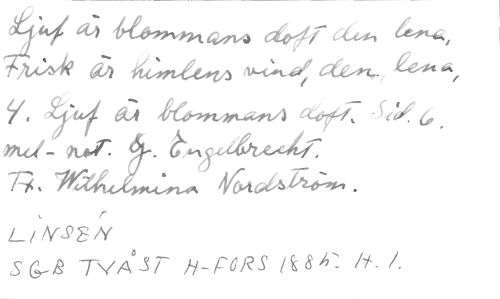 Ljuf är blommans doft den lena,
Frisk är himlens vind, den lena,
4. Ljuf är blommans doft. Sid. 6.
mel-not. G. Engelbrecht.
Fr. Wilhelmina Nordström.
LINSÉN
SGB TVÅST H-FORS 1885. H. 1.